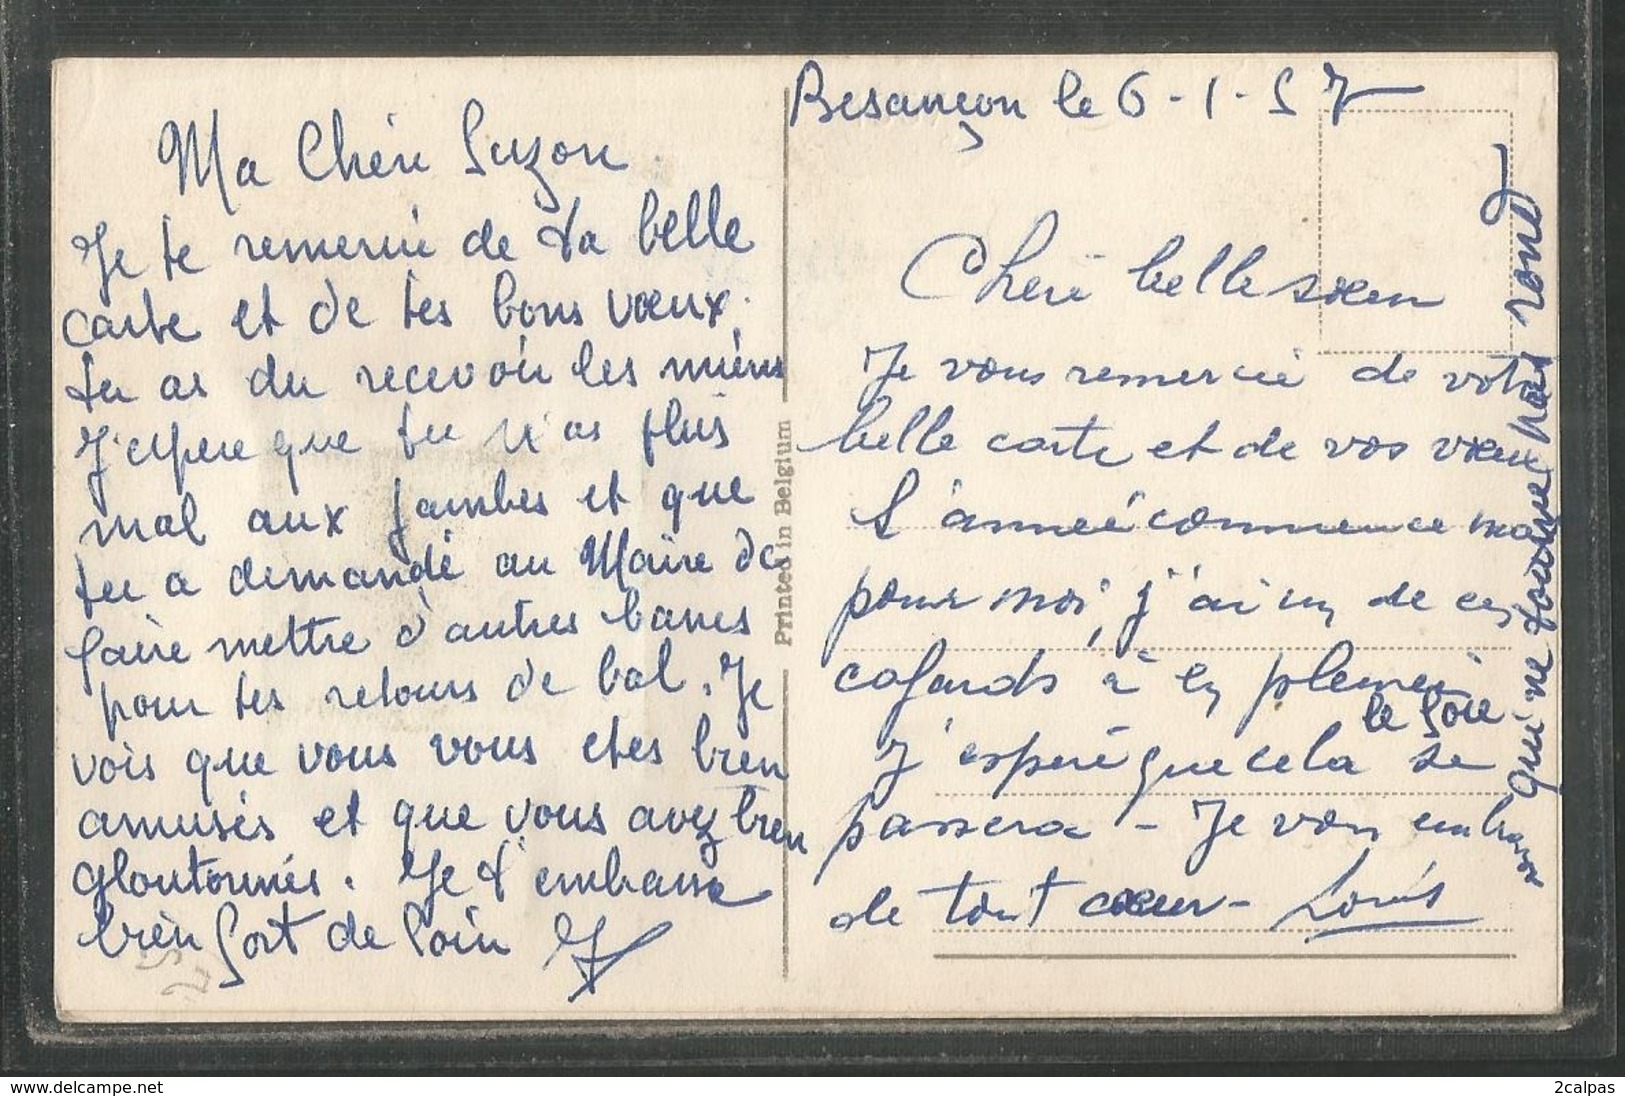 Besançon le 6-1-57
Ma Chérie Suzon
Je te remercie de ta belle
carte et de tes bons vœux.
tu as du recevoir les miens
J'espere que tu n'as plus
mal aux jambes et que
tu a demandé au Maire de
faire mettre d'autres bancs
pour tes retours de bal. Je
vois que vous vous etes bien
amusés et que vous avez bien
gloutonnés. Je t'embrasse
bien fort de loin
Printed in Belgium
Cherie belle sœur
Je vous remercie de votre
belle carte et de vos vœux
L'année commence mal
pour moi, j'ai un de ces
cafards à en pleurer
le soir
J'espere que cela se
passera - Je vous embrasse
de tout cœur - Louis
qui ne tourne pas rond
www.delcampe.net
2calpas